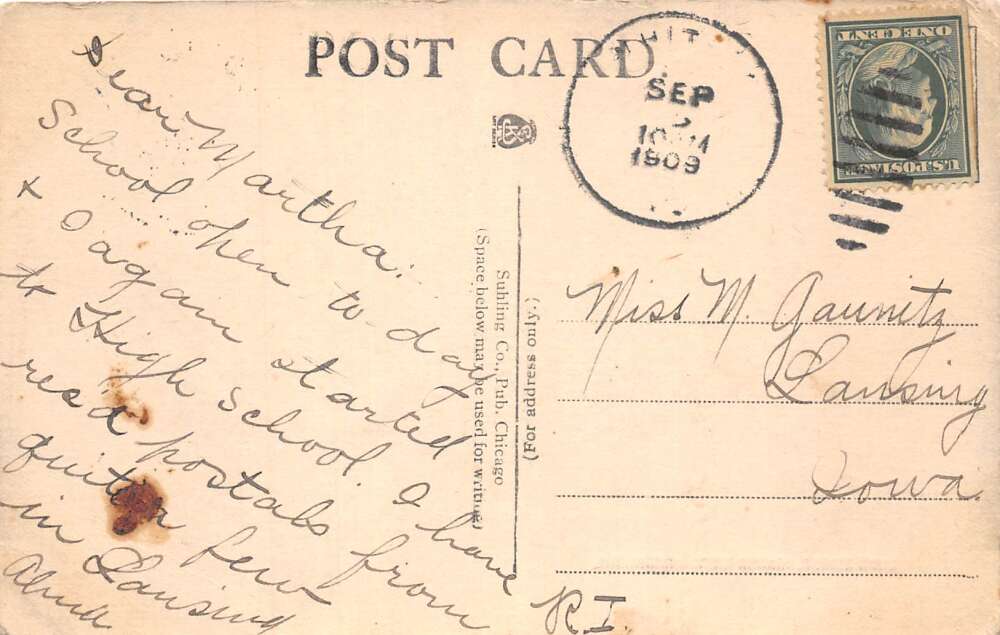 POST CARD.
HIT
SEP
1909
ONE CENT
U.S. POSTAGE
Dear Martha:
School open to-day
+ I again started
to High school. I have
rec'd postals from
quite a few
in Lansing
Alma.
(Space below may be used for writing)
Suhling Co., Pub. Chicago
(For address only.)
Miss M. Gaunitz
Lansing
Iowa
R I.